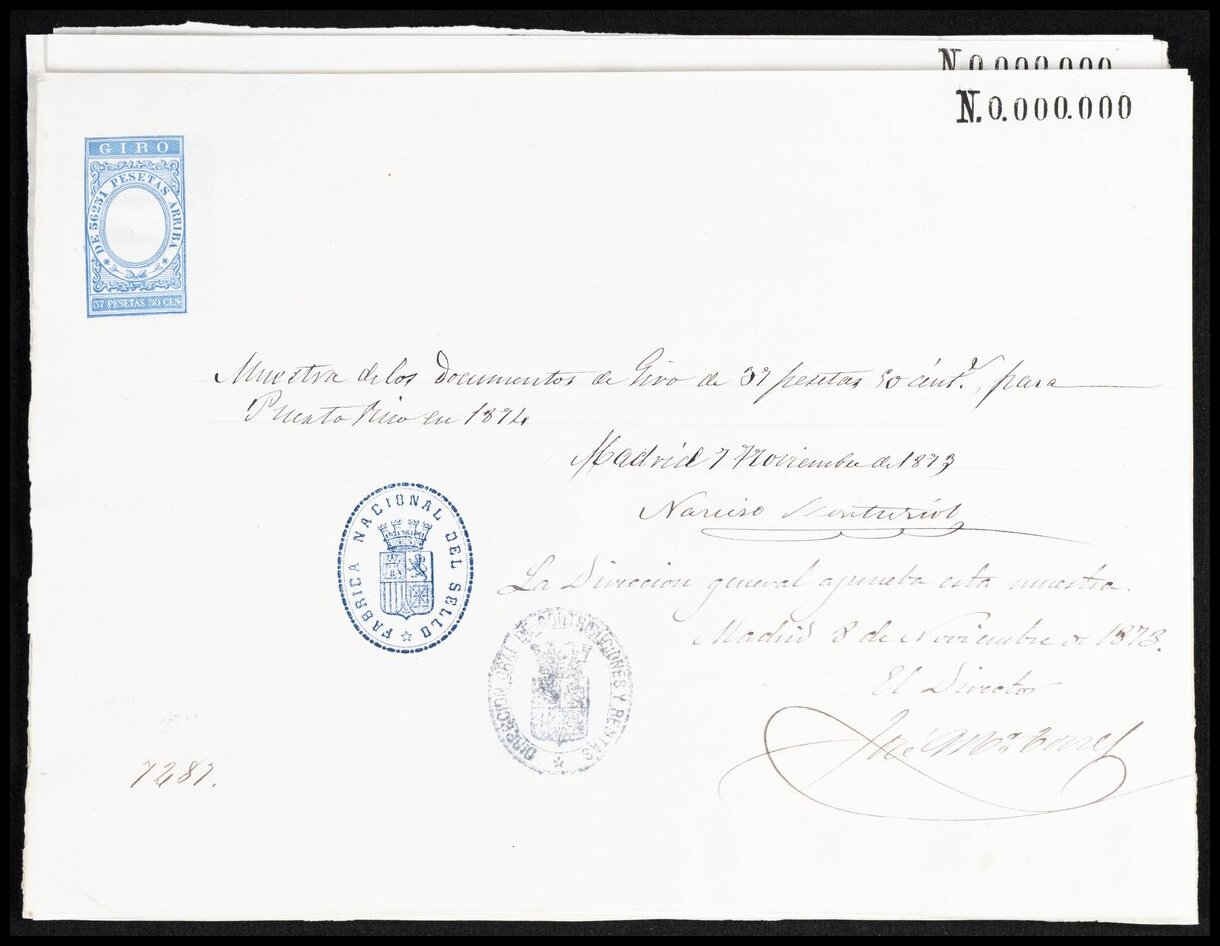 N. 0.000.000
N. 0.000.000
GIRO
DE 56251 PESETAS ARRIBA
37 PESETAS 50 CEN
Muestra de los documentos de Giro de 37 pesetas 50 cént.s, para
Puerto Rico en 1874.
Madrid 7 Noviembre de 1873
Narciso Monturiol
FABRICA NACIONAL DEL SELLO
La Direccion general aprueba esta muestra.
Madrid 8 de Noviembre de 1873.
El Director
DIRECCION GRAL DE CONTRIBUCIONES Y RENTAS
José Mª
7287.